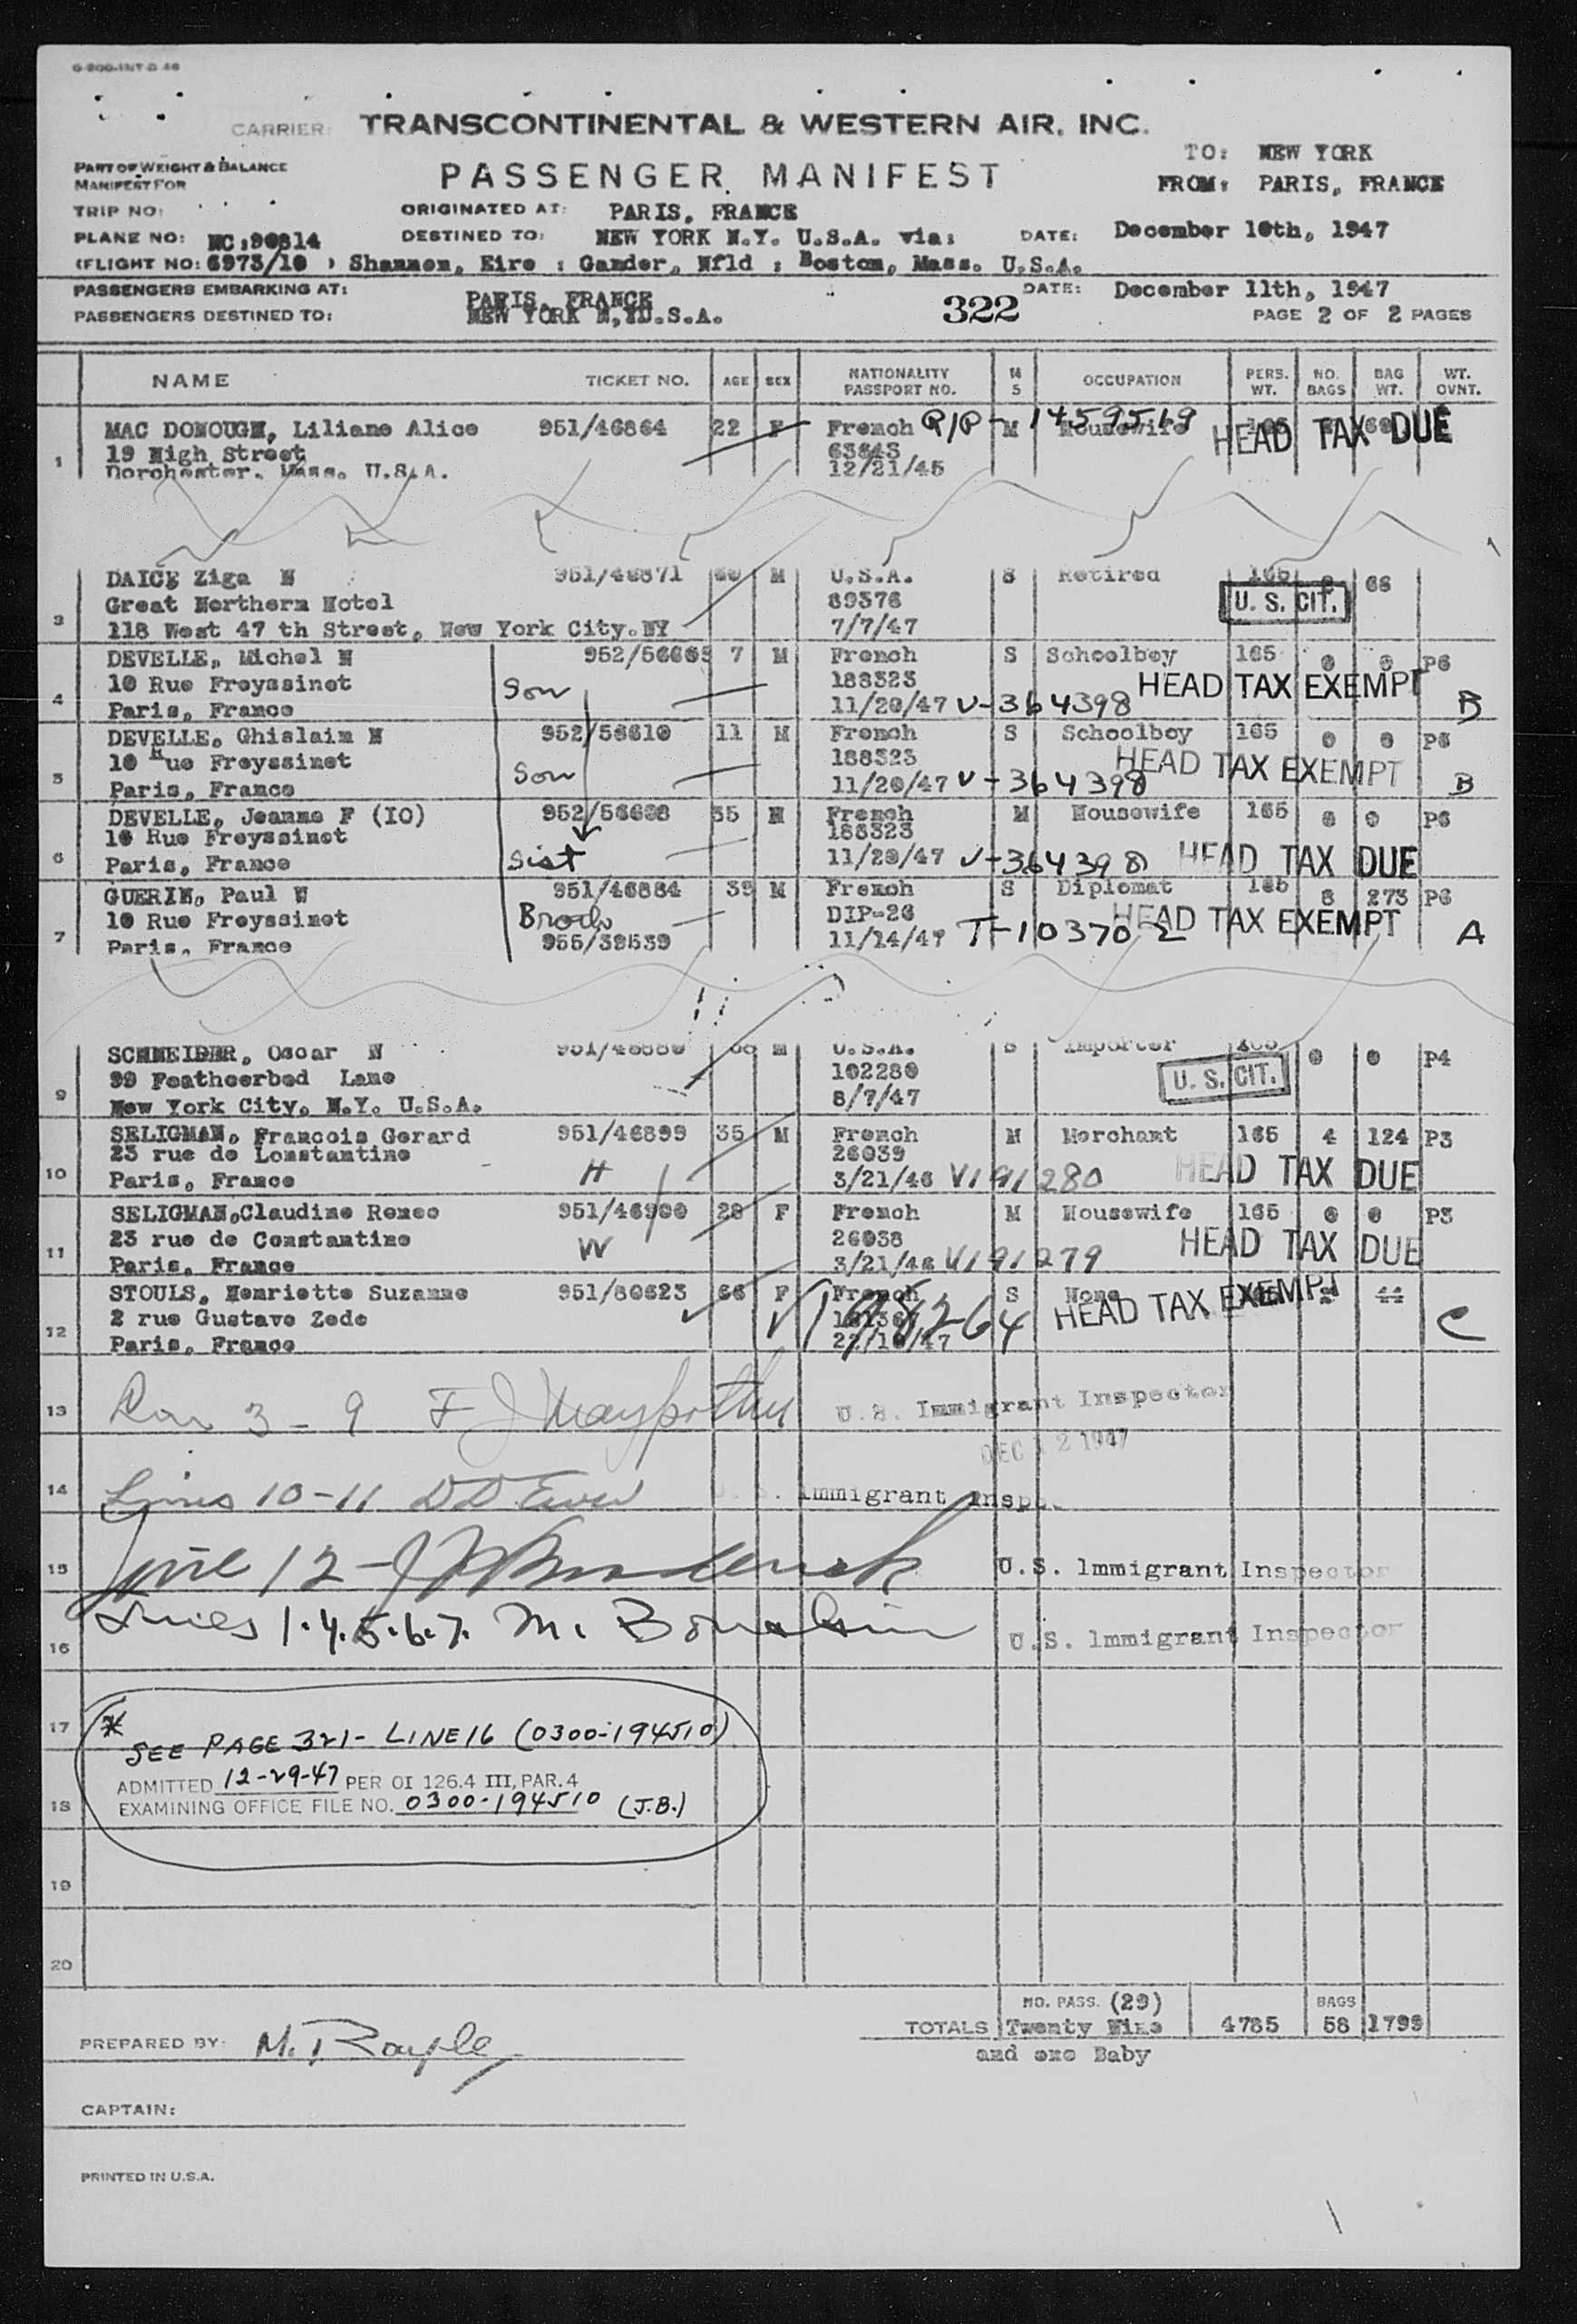 CARRIER: TRANSCONTINENTAL & WESTERN AIR, INC.
PART OF WEIGHT & BALANCE
MANIFEST FOR
PASSENGER MANIFEST
TO: NEW YORK
FROM: PARIS, FRANCE
TRIP NO:
ORIGINATED AT: PARIS, FRANCE
PLANE NO: NC:90814
DESTINED TO: NEW YORK N.Y. U.S.A. via:
DATE: December 10th, 1947
(FLIGHT NO: 6973/10 ) Shannon, Eire ; Gander, Nfld ; Boston, Mass. U.S.A.
PASSENGERS EMBARKING AT: PARIS, FRANCE
322
DATE: December 11th, 1947
PASSENGERS DESTINED TO: NEW YORK N,YU.S.A.
PAGE 2 OF 2 PAGES
NAME TICKET NO. AGE SEX NATIONALITY PASSPORT NO. M S OCCUPATION PERS. WT. NO. BAGS BAG WT. WT. OVNT.
MAC DONOUGH, Liliane Alice 951/46864 22 F French P/P - 1459519 M Housewife HEAD TAX DUE
1 19 High Street 63643
Dorchester. Mass. U.S.A. 12/21/45
DAICE Ziga M 951/46871 M U.S.A. S Retired 165 68
Great Northern Hotel 89376 U. S. CIT.
3 118 West 47 th Street, New York City.NY 7/7/47
DEVELLE, Michel M 7 M French S Schoolboy 165 0 0 P6
10 Rue Freyssinet Son 188323 HEAD TAX EXEMPT
4 Paris, France 11/20/47 V-364398 B
DEVELLE, Ghislain M 952/56610 11 M French S Schoolboy 165 0 0 P6
10 Rue Freyssinet Son 188323 HEAD TAX EXEMPT
5 Paris, France 11/20/47 V-364398 B
DEVELLE, Jeanne F (IO) 952/56608 35 French M Housewife 165 0 0 P6
10 Rue Freyssinet 188323
6 Paris, France Sist 11/20/47 V-364398 HEAD TAX DUE
GUERIN, Paul M 951/46884 M French S Diplomat 165 8 273 P6
10 Rue Freyssinet DIP-26 HEAD TAX EXEMPT
7 Paris, France 955/39539 11/14/47 T-103702 A
SCHNEIDER, Oscar M M U.S.A. S Importer 165 0 0 P4
99 Featheerbed Lane 102280 U. S. CIT.
9 New York City. N.Y. U.S.A. 8/7/47
SELIGMAN, Francois Gerard 951/46899 35 M French M Merchant 165 4 124 P3
23 rue de Lonstantine 26039
10 Paris, France H 3/21/46 V191280 HEAD TAX DUE
SELIGMAN,Claudine Renee 951/46900 28 F French M Housewife 165 0 0 P3
23 rue de Constantine W 26038 HEAD TAX DUE
11 Paris, France 3/21/46 V191279
STOULS, Henriette Suzanne 951/80623 66 F French S None 44
2 rue Gustave Zede HEAD TAX EXEMPT C
12 Paris, France
13 3 - 9 U.S. Immigrant Inspector
DEC 12 1947
14 Lines 10-11 U.S. Immigrant Insp
15 Line 12 - U.S. Immigrant Inspector
16 Lines 1.4.5.6.7. M. U.S. Immigrant Inspector
17 * SEE PAGE 321 - LINE 16 (0300-194510)
ADMITTED 12-29-47 PER OI 126.4 III, PAR. 4
18 EXAMINING OFFICE FILE NO. 0300-194510 (J.B.)
19
20
NO. PASS. (29) BAGS
TOTALS Twenty Nine 4785 58 1799
and one Baby
PREPARED BY: M.
CAPTAIN:
PRINTED IN U.S.A.